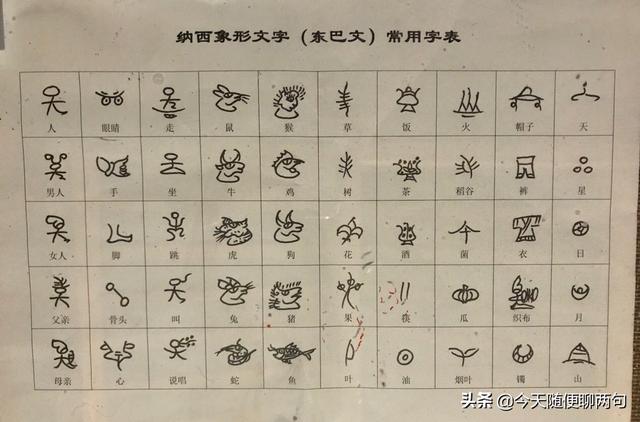 纳西象形文字（东巴文）常用字表
人 眼睛 走 鼠 猴 草 饭 火 帽子 天
男人 手 坐 牛 鸡 树 茶 稻谷 裤 星
女人 脚 跳 虎 狗 花 酒 菌 衣 日
父亲 骨头 叫 兔 猪 果 筷 瓜 织布 月
母亲 心 说唱 蛇 鱼 叶 油 烟叶 镯 山
头条 @今天随便聊两句